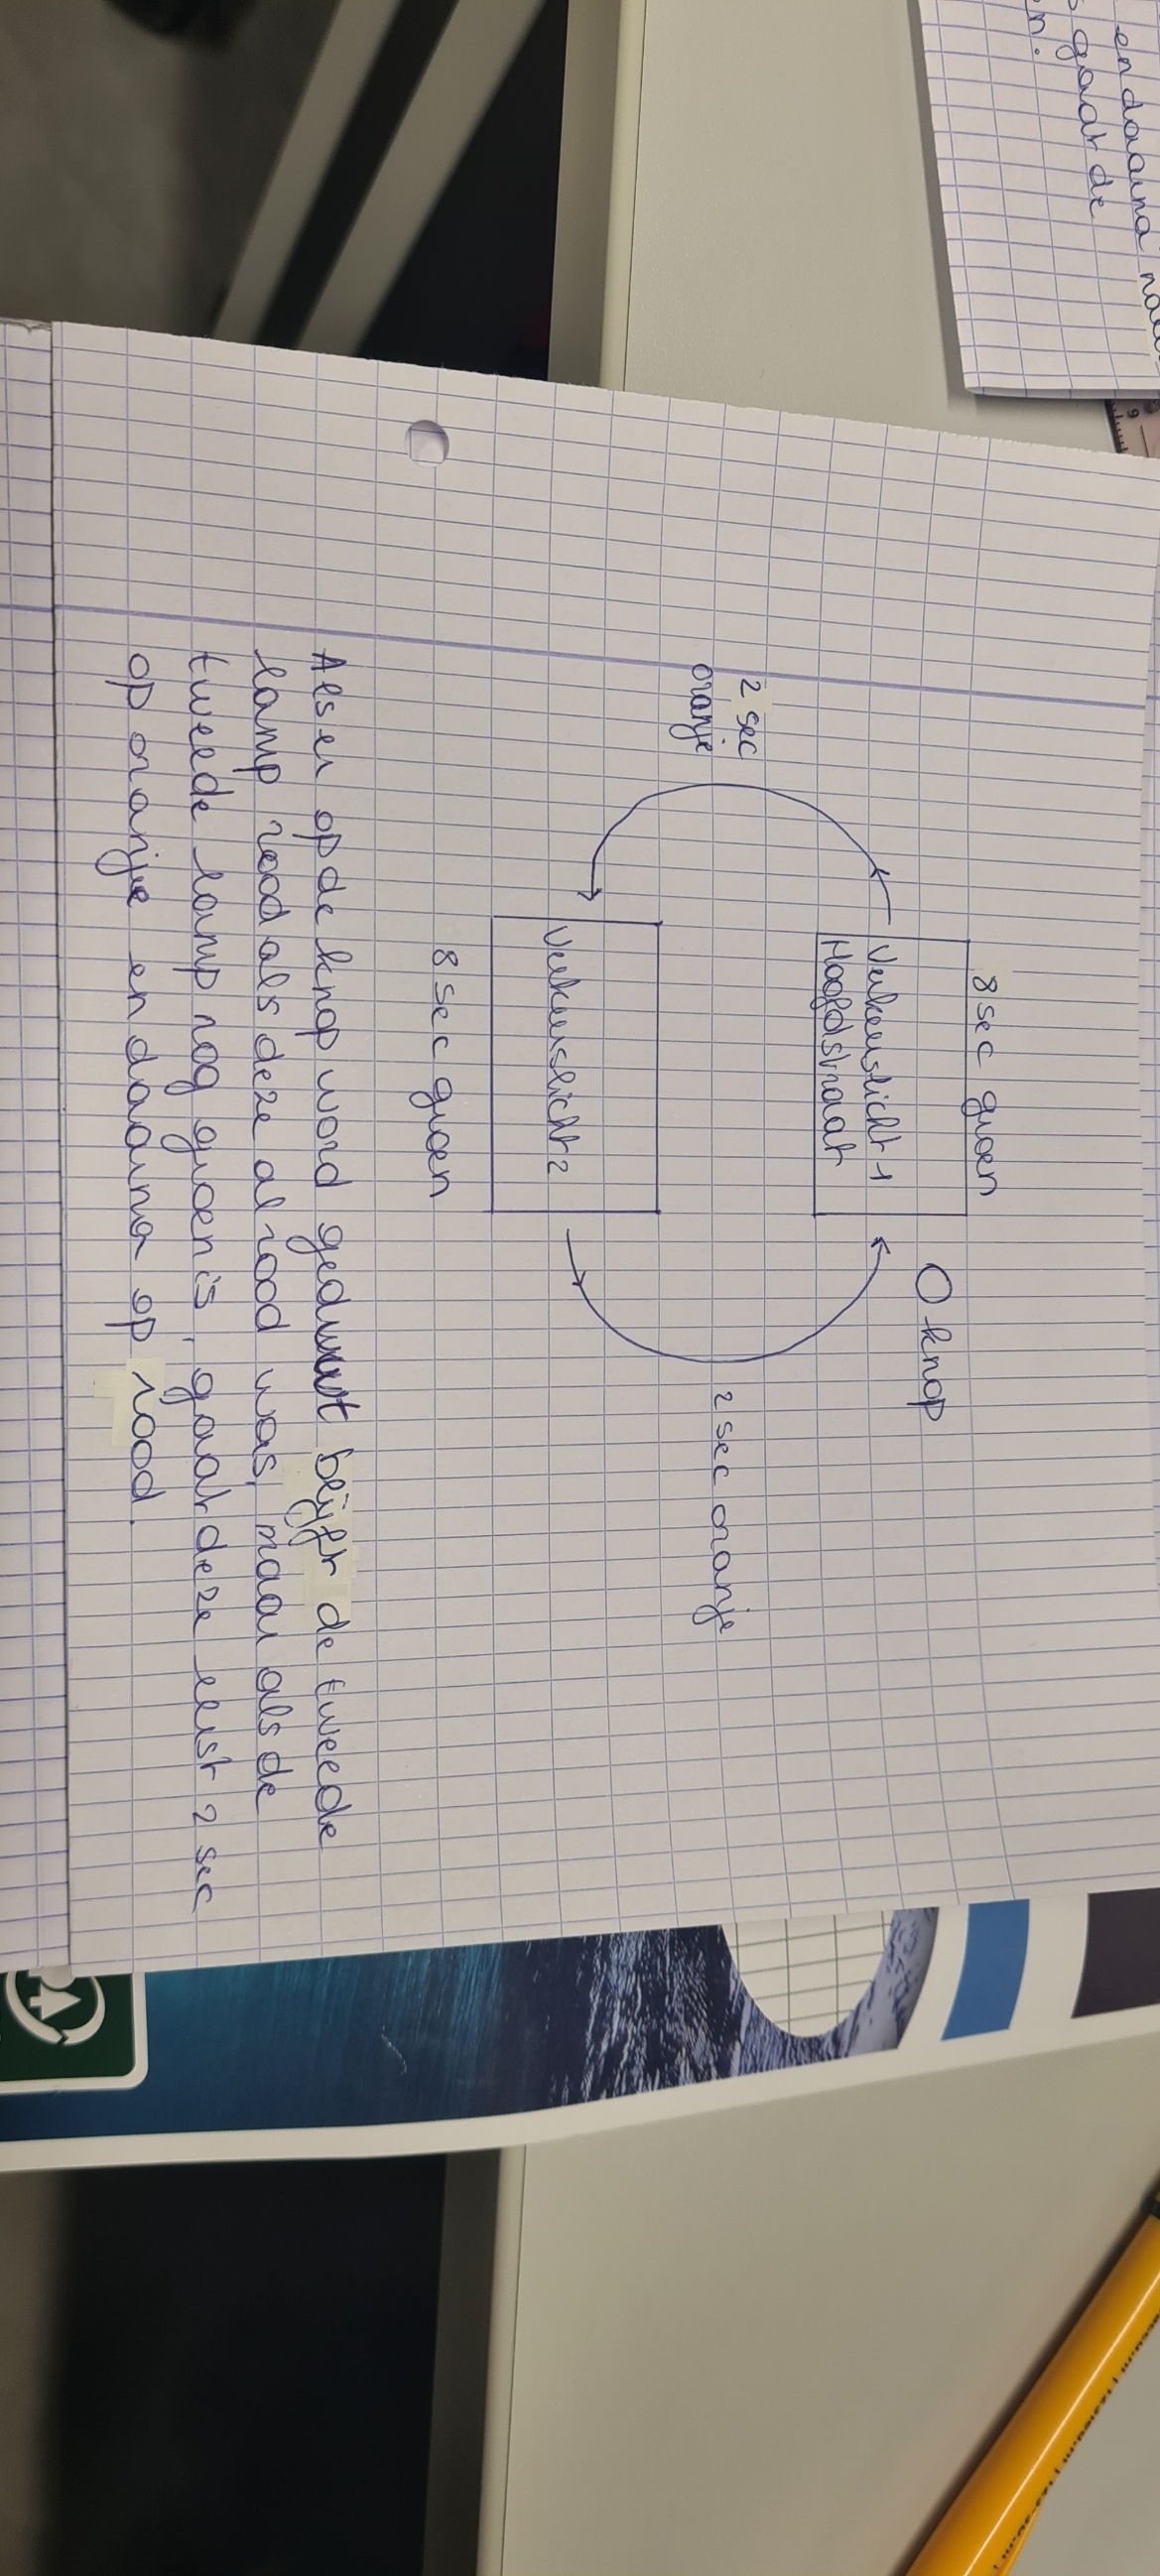 en daarna
gaat de
9
8 sec groen
O knop
Verkeerslicht 1
Hoofdstraat
2 sec
oranje
2 sec oranje
Verkeerslicht 2
8 sec groen
Als er op de knop word geduwt blijft de tweede
lamp rood als deze al rood was, maar als de
tweede lamp nog groen is, gaat deze eerst 2 sec
op oranje en daarna op rood.